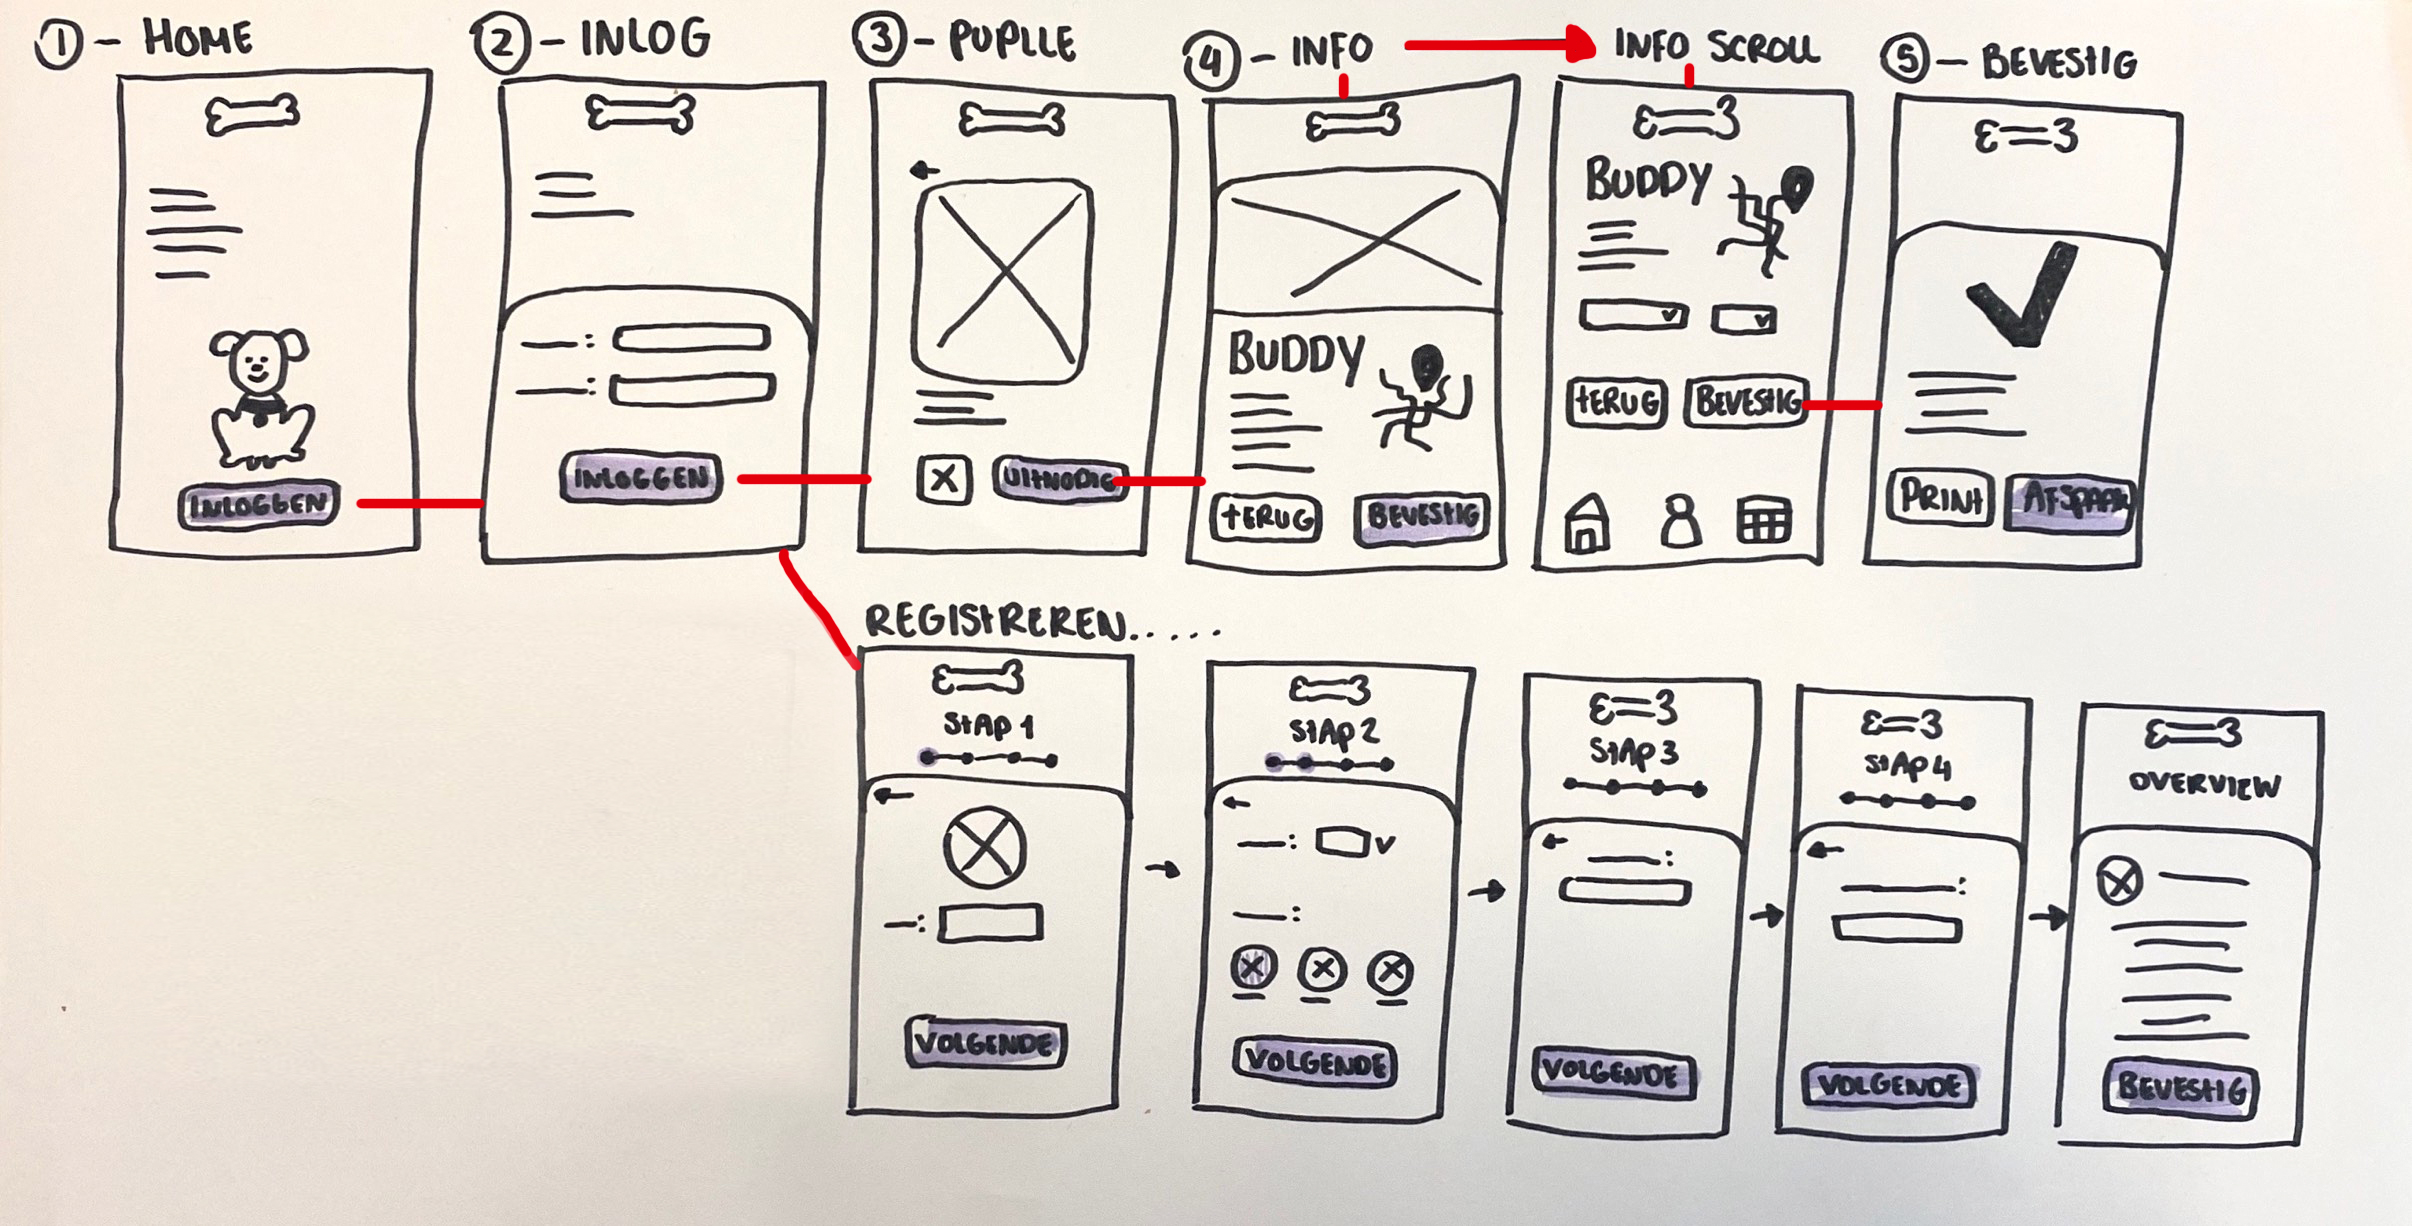 1 - HOME
INLOGGEN
2 - INLOG
INLOGGEN
3 - PUPLLE
X
UITNODIG
4 - INFO
BUDDY
TERUG
BEVESTIG
INFO SCROLL
BUDDY
TERUG
BEVESTIG
5 - BEVESTIG
PRINT
AFSPAAK
REGISTREREN.....
STAP 1
VOLGENDE
STAP 2
VOLGENDE
STAP 3
VOLGENDE
STAP 4
VOLGENDE
OVERVIEW
BEVESTIG